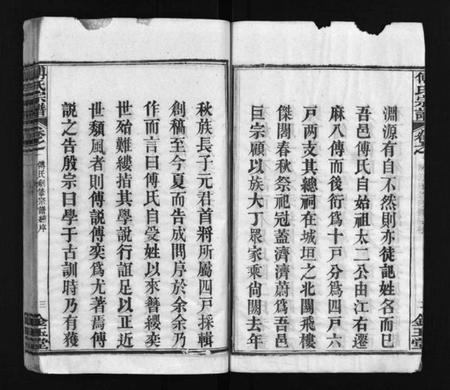 淵源有自不然則亦徒記姓名而已
吾邑傅氏自始祖太二公由江右遷
麻八傳而後衍爲十戸分爲四戸六
戸两支其總祠在城垣之北闤飛樓
傑閣春秋祭祀冠蓋濟濟蔚爲吾邑
巨宗顧以族大丁衆家乘尙闕去年
秋族長子元君首將所屬四戸採輯
創稿至今夏而告成問序於余余乃
作而言曰傅氏自受姓以來簪纓奕
世殆難縷指其學說行誼足以正近
世頽風者則傅説傅奕爲尤著焉傅
説之告殷宗曰學于古訓時乃有獲
傅氏宗譜
卷之
傅氏創修宗譜序
三
金玉堂